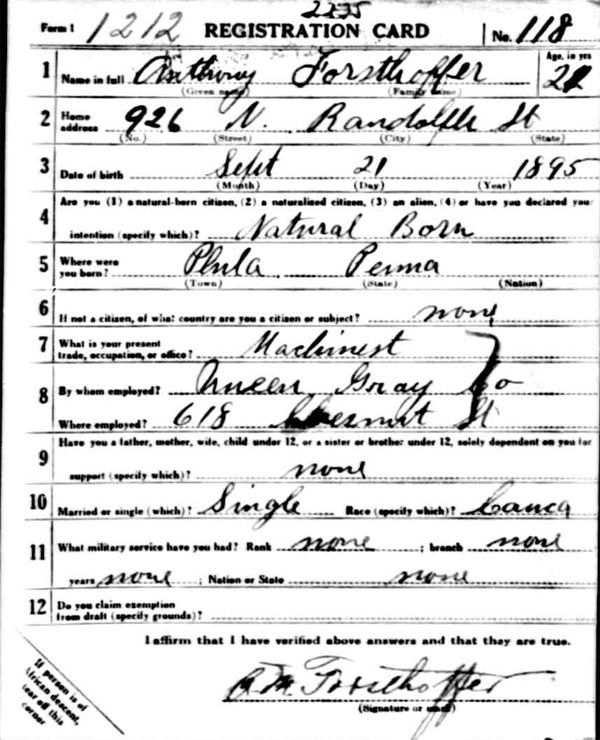 2235
Form 1 1212 REGISTRATION CARD No. 118
1 Name in full Anthony Forsthoffer Age, in yrs 21
(Given name) (Family name)
2 Home address 926 N. Randolph St
(No.) (Street) (City) (State)
3 Date of birth Sept 21 1895
(Month) (Day) (Year)
4 Are you (1) a natural-born citizen, (2) a naturalized citizen, (3) an alien, (4) or have you declared your
intention (specify which)? Natural Born
5 Where were you born? Phila Penna
(Town) (State) (Nation)
6 If not a citizen, of what country are you a citizen or subject? none
7 What is your present trade, occupation, or office? Machinest
8 By whom employed? Queen Gray Co
Where employed? 618 Chesnut St
9 Have you a father, mother, wife, child under 12, or a sister or brother under 12, solely dependent on you for
support (specify which)? none
10 Married or single (which)? Single Race (specify which)? Cauca
11 What military service have you had? Rank none ; branch none
years none ; Nation or State none
12 Do you claim exemption
from draft (specify grounds)?
I affirm that I have verified above answers and that they are true.
A M Forsthoffer
(Signature or mark)
If person is of
African descent,
tear off this
corner